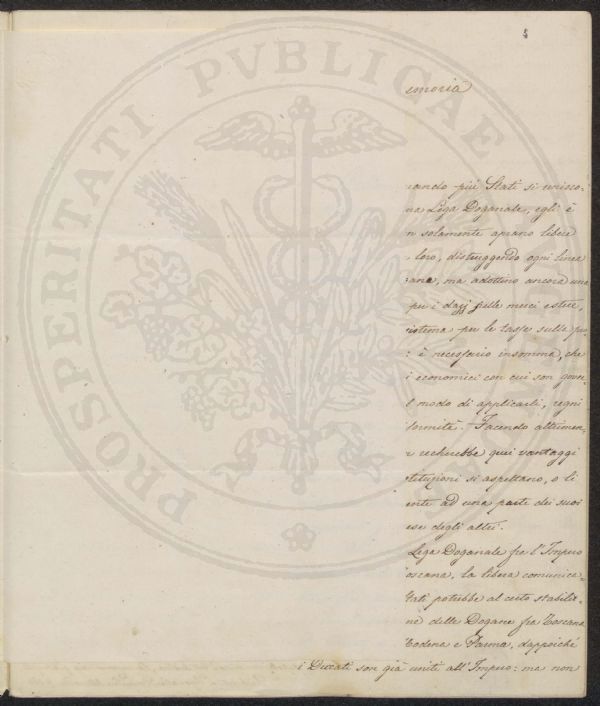 5
PROSPERITATI PVBLICAE
emoria
uando più Stati si unisco-
na Lega Doganale, egli è
n solamente aprano libere
loro, distruggendo ogni linea
ana, ma adottino ancora una
per i dazj sulle merci estere,
istema per le tasse sulle pro
: è necessario insomma, che
i economici con cui son gover
l modo di applicarli, regni
formità. Facendo altrimen-
recherebbe quei vantaggi
stituzioni si aspettano, o li
ente ad una parte dei suoi
ese degli altri.
Lega Doganale fra l'Impero
oscana, la libera comunica-
Stati potrebbe al certo stabilir-
ne delle Dogane fra Toscana
Modena e Parma, dappoiché
i Ducati son già uniti all'Impero: ma non